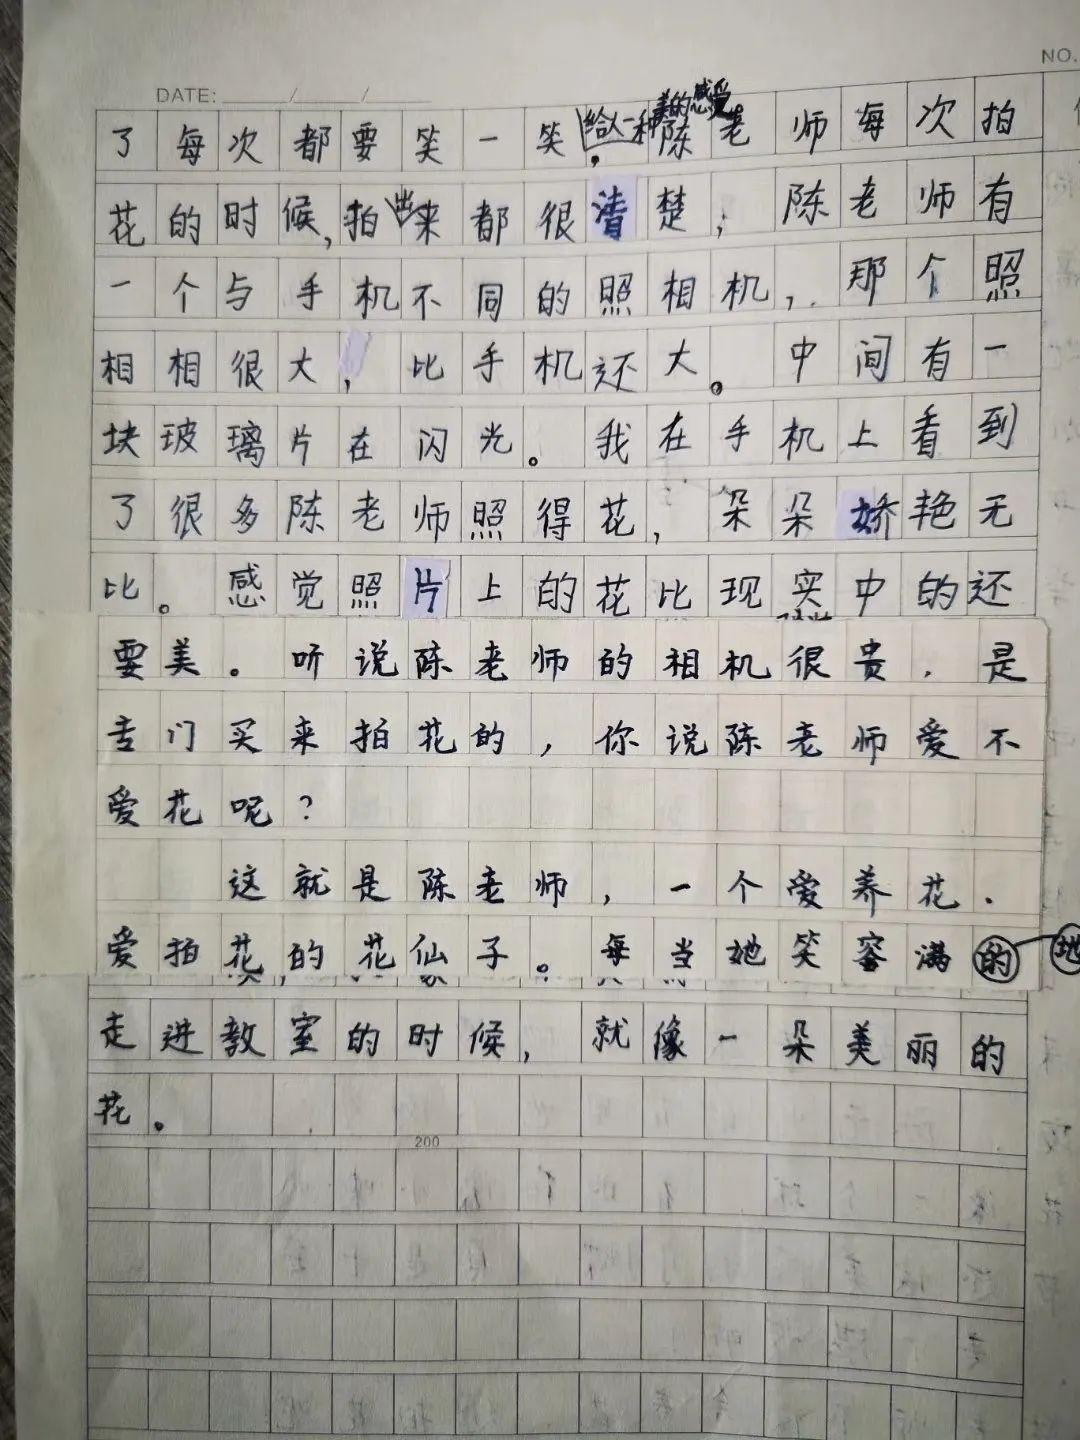 NO.
DATE: / /
给人一种美的感受。
了每次都要笑一笑，陈老师每次拍
花的时候,拍出来都很清楚，陈老师有
一个与手机不同的照相机，那个照
相相很大，比手机还大。中间有一
块玻璃片在闪光。我在手机上看到
了很多陈老师照得花，朵朵娇艳无
比。感觉照片上的花比现实中的还
要美。听说陈老师的相机很贵，是
专门买来拍花的，你说陈老师爱不
爱花呢？
这就是陈老师，一个爱养花.
爱拍花的花仙子。每当她笑容满的地
走进教室的时候，就像一朵美丽的
花。
200